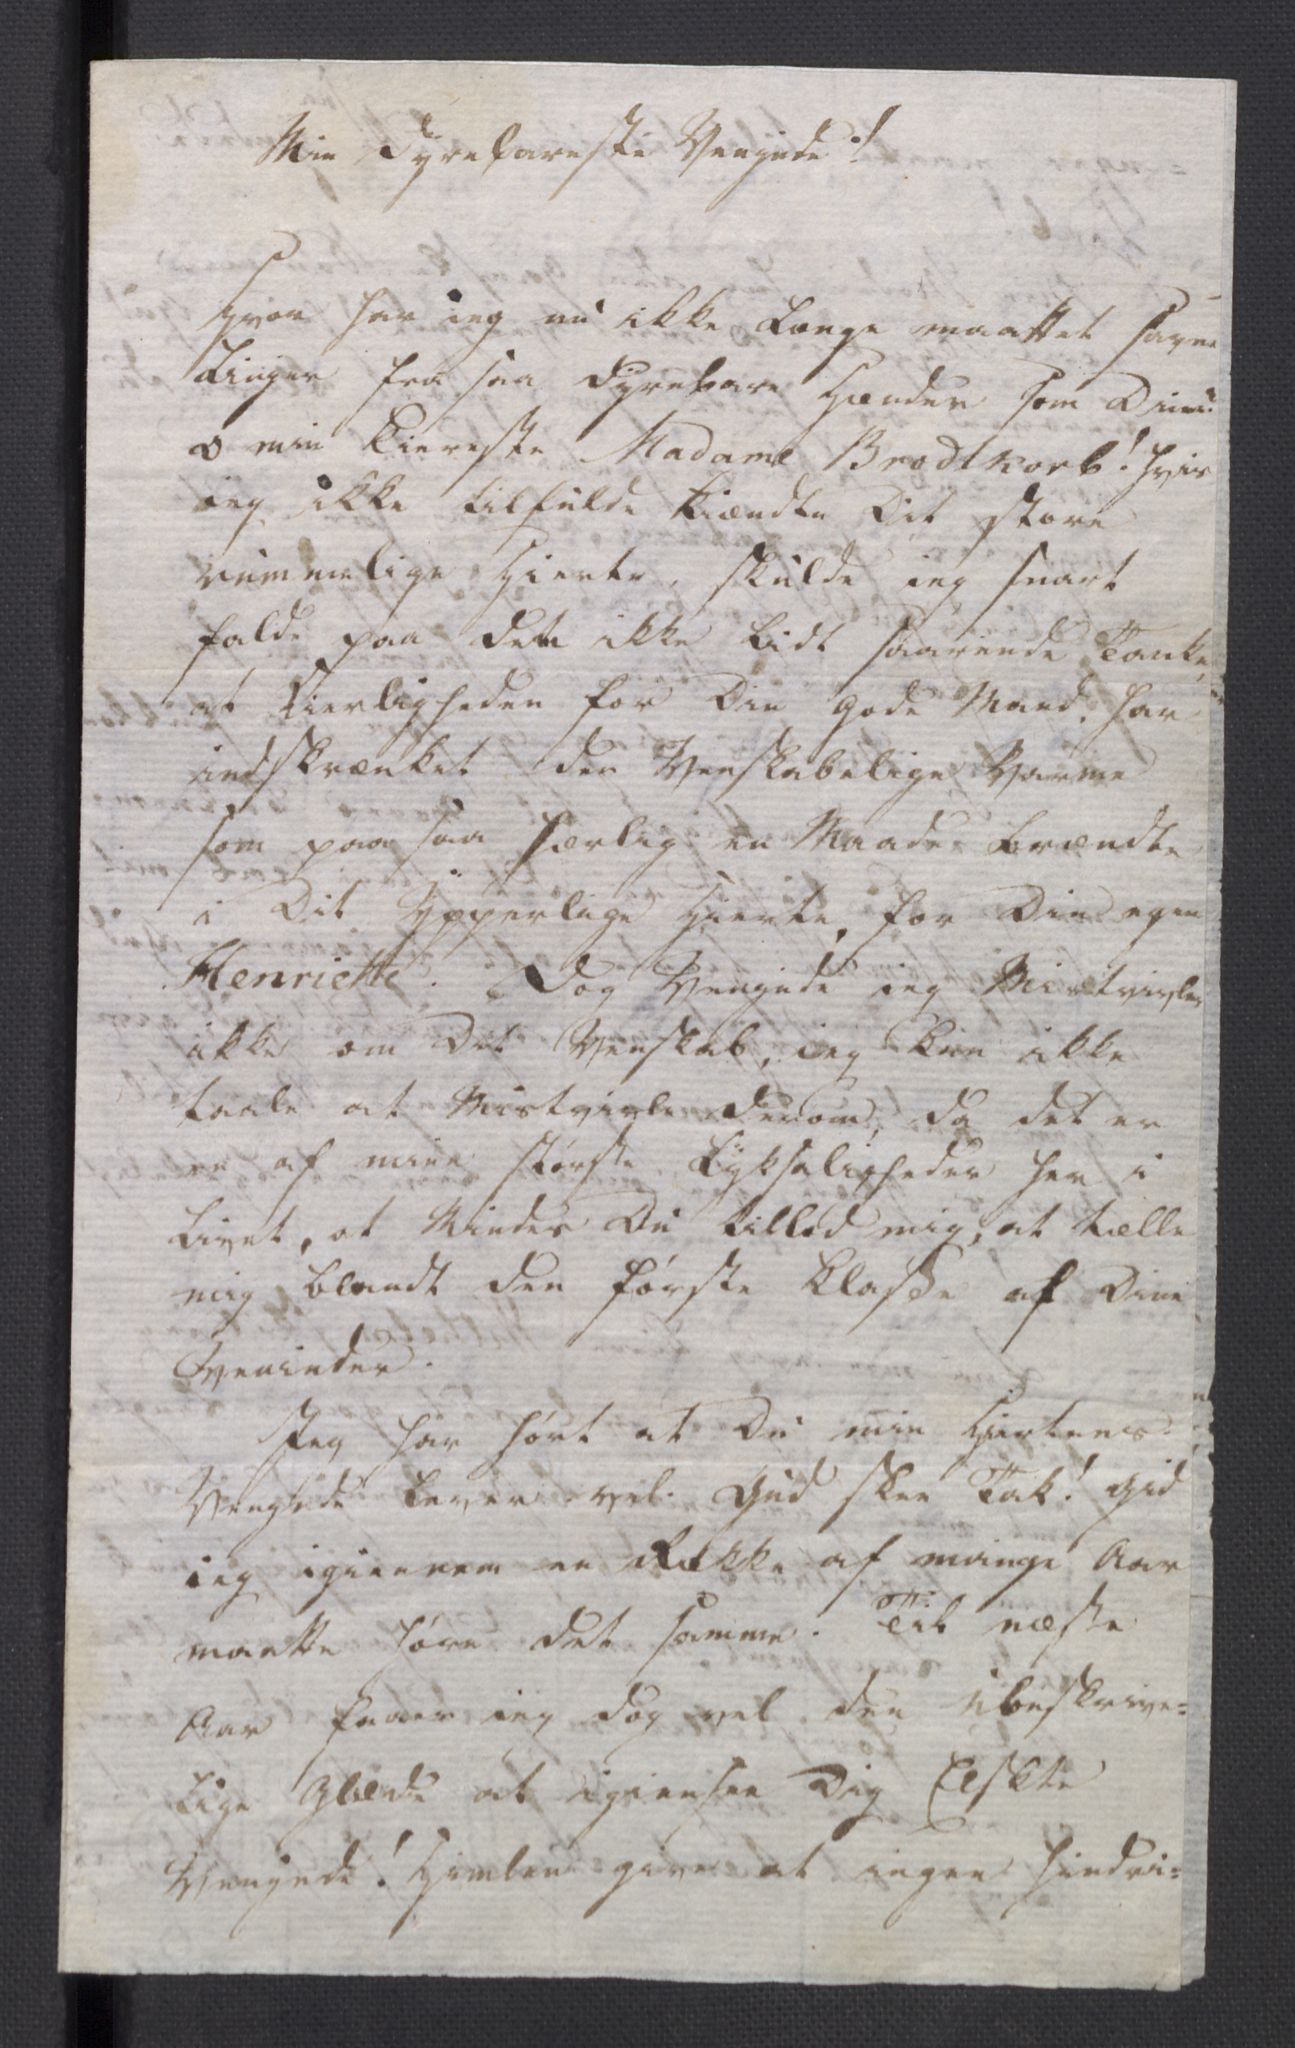 Min dyrebareste Veninde!
Hvor har ieg nu ikke Længe maattet savne
Linger fra saa dyrebare Hænder som Dine
o min kiereste Madame Brodtkorb! hvis
ieg ikke tilfulde kiændte Dit store
rummelige Hierte, skulde ieg snart
falde paa den ikke lidt saarende Tanke,
at Kierligheden for Din gode Mand, har
indskrænket den Venskabelige Varme
som paa saa herlig en Maade brændte
i Dit Ypperlige Hierte, for Din egen
Henriette. Dog Veninde ieg Mistvivler
ikke om Dit Venskab, ieg kan ikke
taale at Mistvivle derom, da det er
en af mine største Lyksaligheder her i
Livet, at Minder Du tillod mig, at tælle
mig blandt den første Klasse af Dine
Veninder.
Jeg har hørt at Du min Hiertens
Veninde Lever vel. Gud skee Tak! Gid
ieg igiennem en Række af mange Aar
maatte høre det samme. Til næste
Aar faaer ieg dog vel den ubeskrive=
lige Glæde at igiensee Dig Elskte
Veninde! Himlen give at ingen hindri=